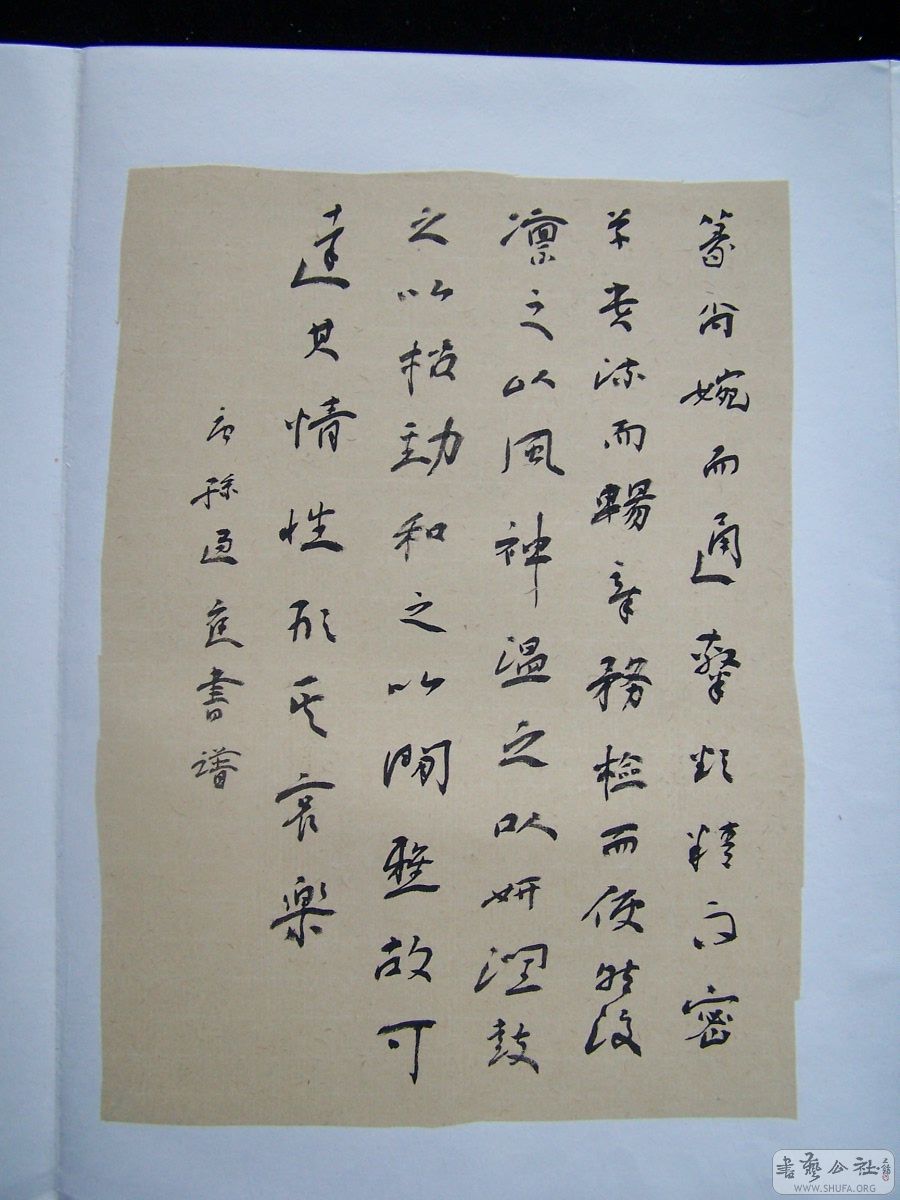 篆尚婉而通隸欲精而密
草貴流而暢章務檢而便然後
凜之以風神溫之以妍潤鼓
之以枯勁和之以閑雅故可
達其情性形其哀樂
唐孫過庭書譜
書藝公社
WWW.SHUFA.ORG